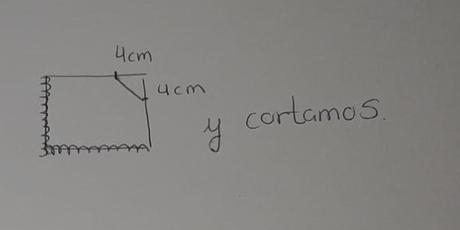 4cm
4cm
y cortamos.